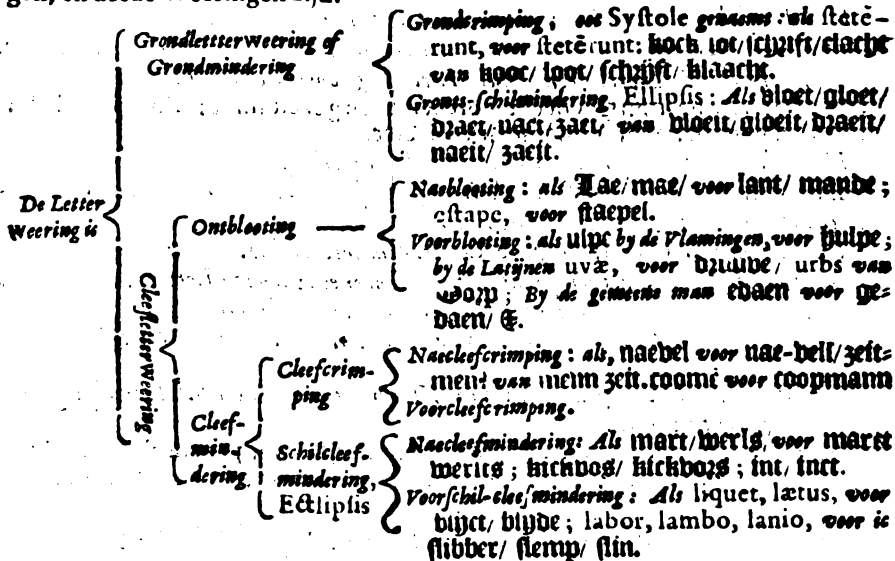 Grondletter weering of
Grondmindering
Grondcrimping, oot Systole genaemt: als stetē-
runt, voor stetērunt: kock lot/schrift/clacht
van kooc/ loot/ schrijft/ klaacht.
Gronts-schilmindering, Ellipsis: Als bloet/gloet/
draet/ naet/ zaet/ van bloeit/ gloeit/ draeit/
naeit/ zaeit.
De Letter
weering is
Cleefletter weering
Ontblooting
Naeblooting: als Lae/ mae/ voor lant/ mande;
estape, voor staepel.
Voorblooting: als ulpe by de Vlamingen, voor hulpe;
by de Latijnen uvæ, voor druuve/ urbs van
worp; By de gemeene man edaen voor ge-
daen/ &.
Cleef-
min-
dering
Cleefcrim-
ping
Naecleefcrimping: als, naevel voor nae-vell/ zeit-
men van menn zeit. coomē voor coopmann
Voorcleefcrimping.
Schilcleef-
mindering,
Ectlipsis
Naecleefmindering: Als mart/ werls, voor marct
werlts; kickvos/ kickvors; int, inct.
Voorschil-cleefmindering: Als liquet, lætus, voor
blijct/ blijde; labor, lambo, lanio, voor ic
slibber/ slemp/ slin.